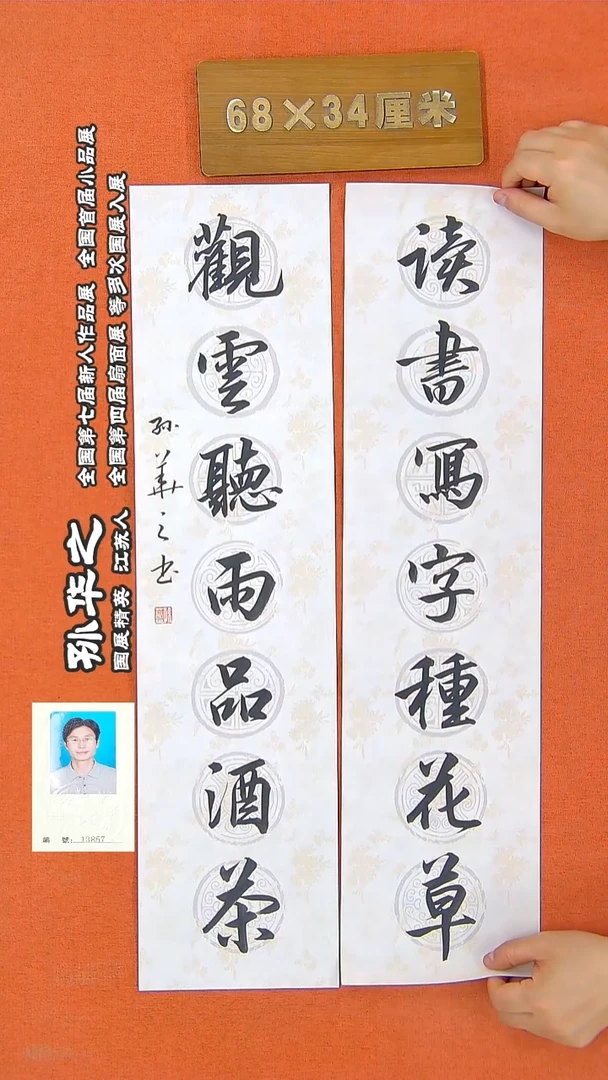 68×34厘米
读書寫字種花草
觀雲聽雨品酒茶
孙華之书
孙华之
国展精英 江苏人
全国第七届新人作品展 全国首届小品展
全国第四届扇面展 等多次国展入展
編 號: 13857